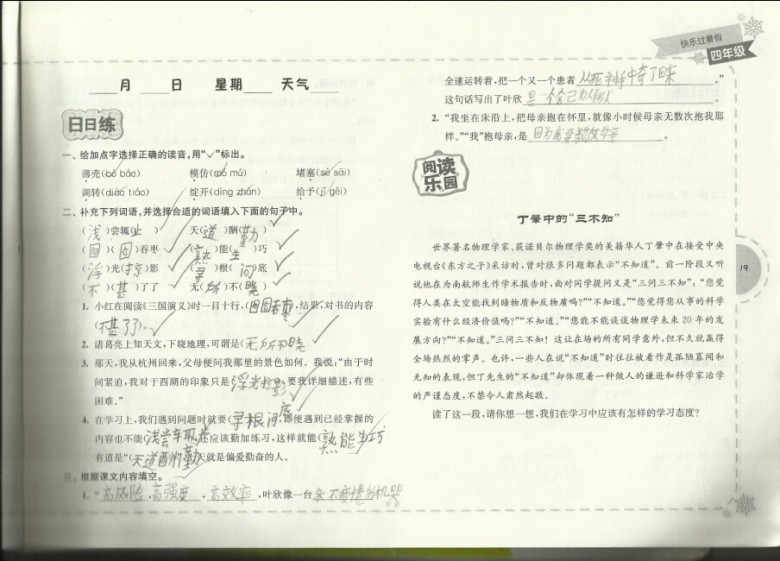 快乐过暑假
四年级
月 日 星期 天气
日日练
一、给加点字选择正确的读音,用“✓”标出。
薄壳(bó báo) 模仿(mó mú) 堵塞(sè sāi)
调转(diào tiáo) 绽开(dìng zhán) 给予(jǐ gěi)
二、补充下列词语,并选择合适的词语填入下面的句子中。
(浅)尝辄(止) 天(道)酬(勤)
(囫)(囵)吞枣 (熟)能(生)巧
(浮)光(掠)影 (寻)根(问)底
(不)(甚)了了 无(所)不(晓)
1. 小红在阅读《三国演义》时一目十行,(囫囵吞枣),结果,对书的内容
(不甚了了)。
2. 诸葛亮上知天文,下晓地理,可谓是(无所不晓)
3. 那天,我从杭州回来,父母便问我那里的景色如何。我说:“由于时
间紧迫,我对于西湖的印象只是(浮光掠影)要我详细描述,有些
困难。”
4. 在学习上,我们遇到问题时就要(寻根问底)即便遇到已经掌握的
内容也不能(浅尝辄止)还应该勤加练习,这样就能(熟能生巧)
有道是“(天道酬勤)天就是偏爱勤奋的人。
三、根据课文内容填空。
1. “高风险,高强度,高效率,叶欣像一台永不疲倦的机器
全速运转着,把一个又一个患者从死神手中夺了回来。”
这句话写出了叶欣是一个舍己为人。
2. “我坐在床沿上,把母亲抱在怀里,就像小时候母亲无数次抱我那
样。”“我”抱母亲,是
阅读
乐园
丁肇中的“三不知”
世界著名物理学家、获诺贝尔物理学奖的美籍华人丁肇中在接受中央
电视台《东方之子》采访时,曾对很多问题都表示“不知道”。前一阶段又听
说他在为南航师生作学术报告时,面对同学提问又是“三问三不知”:“您觉
得人类在太空能找到暗物质和反物质吗?”“不知道。”“您觉得您从事的科学
实验有什么经济价值吗?”“不知道。”“您能不能谈谈物理学未来 20 年的发
展方向?”“不知道。”三问三不知!这让在场的所有同学意外,但不久就赢得
全场热烈的掌声。也许,一些人在说“不知道”时往往被看作是孤陋寡闻和
无知的表现,但丁先生的“不知道”却体现着一种做人的谦逊和科学家治学
的严谨态度,不禁令人肃然起敬。
读了这一段,请你想一想,我们在学习中应该有怎样的学习态度?
19